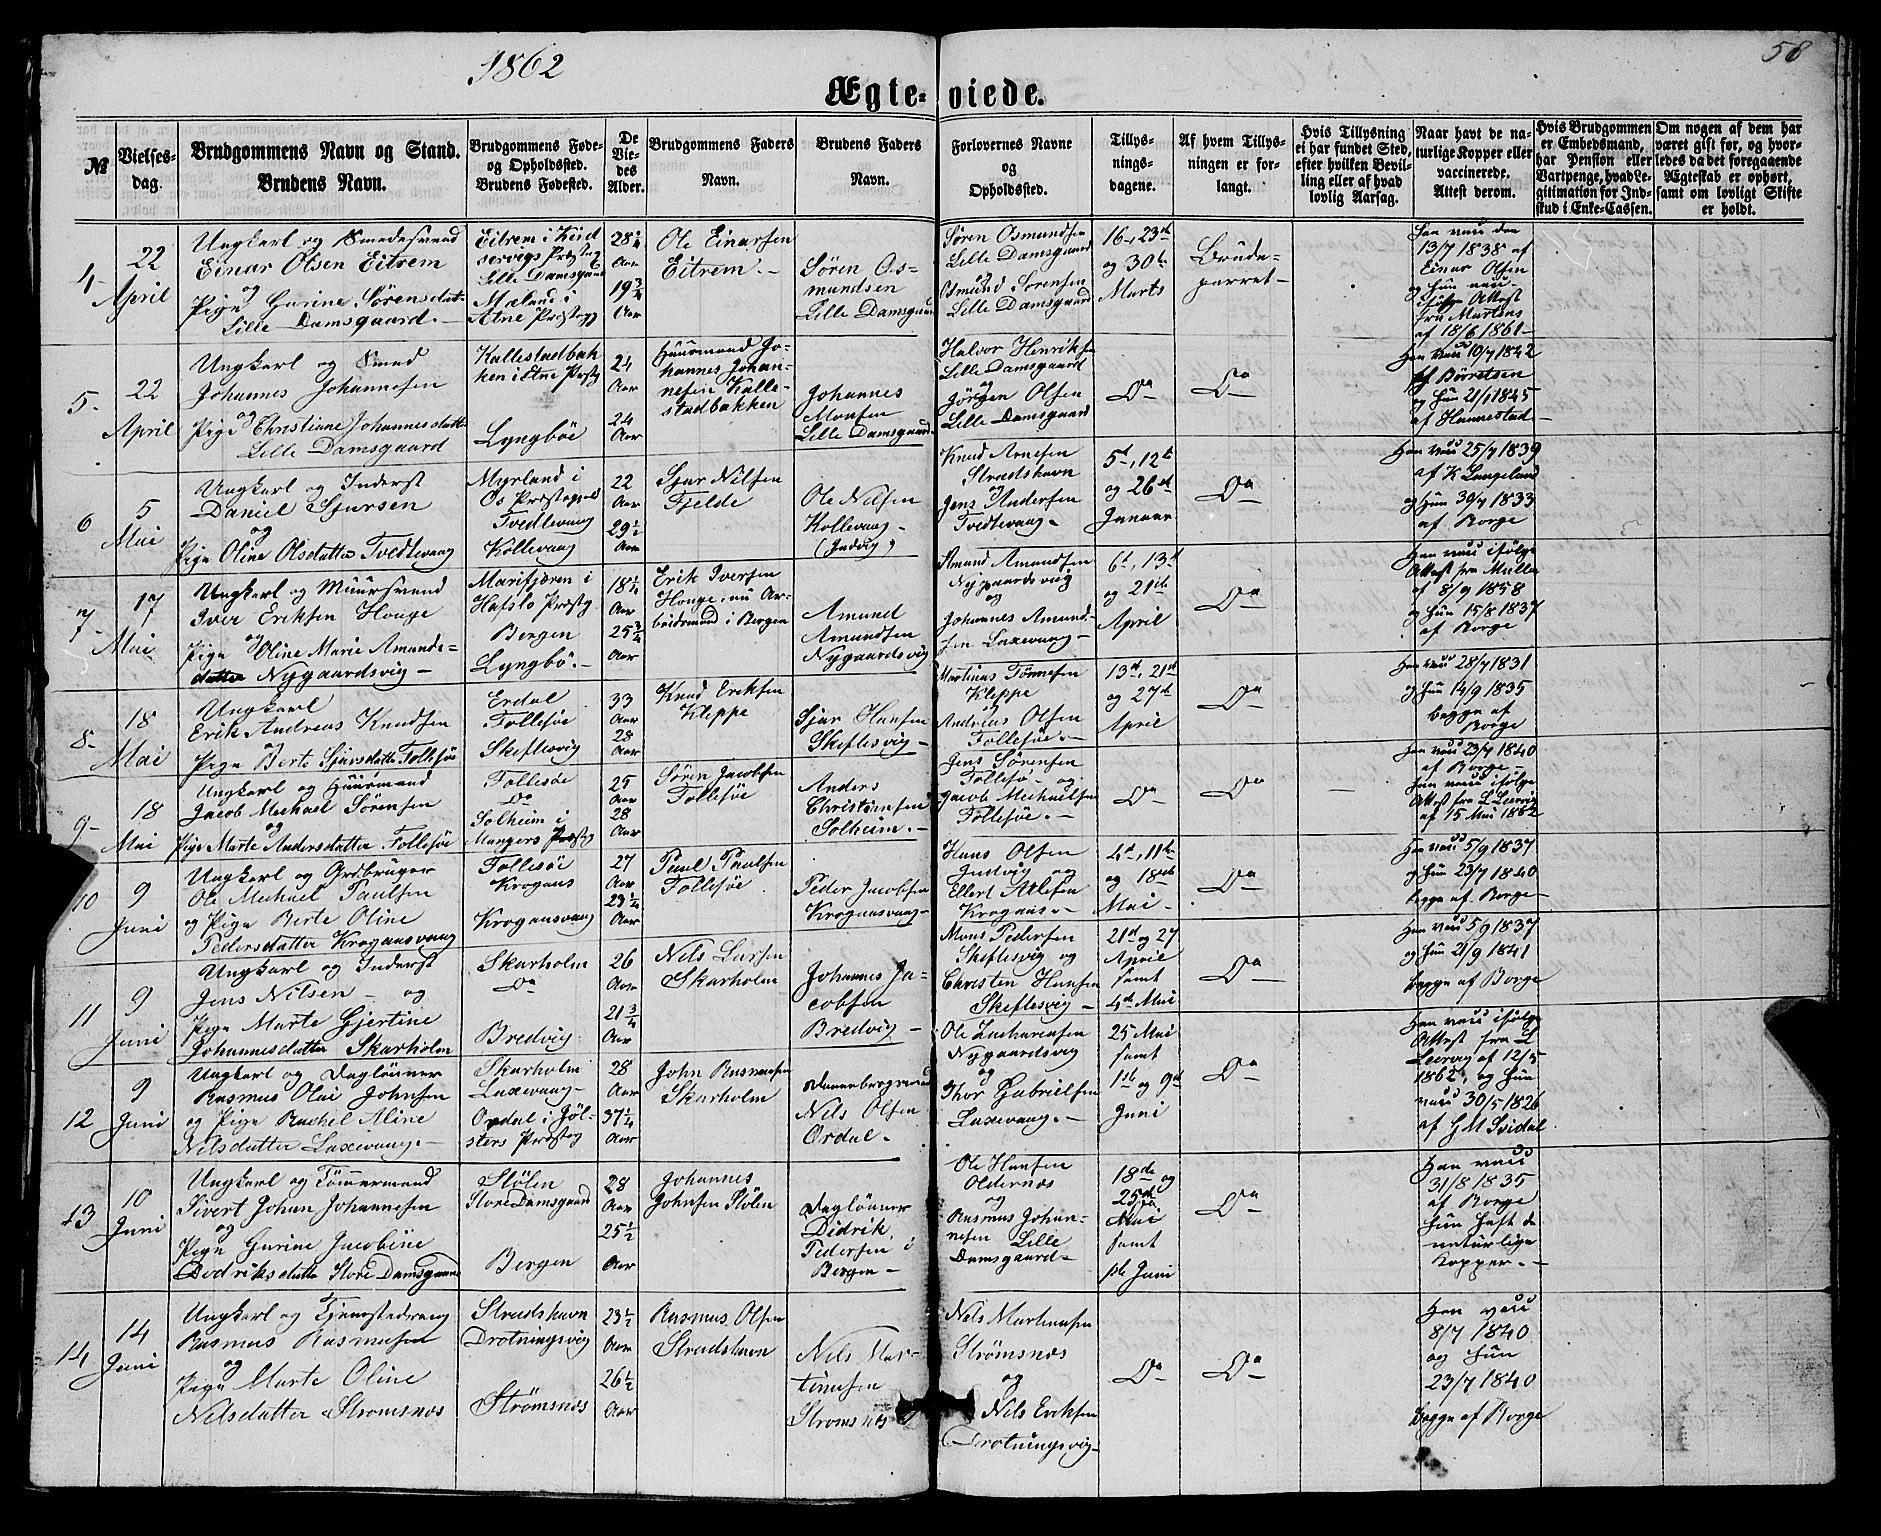 1862
58
Ægte-viede.
№
Vielses-
dag.
Brudgommens Navn og Stand.
Brudens Navn.
Brudgommens Føde-
og Opholdssted.
Brudens Fødested.
De
Vie-
des
Alder.
Brudgommens Faders
Navn.
Brudens Faders
Navn.
Forlovernes Navne
og
Opholdssted.
Tillys-
nings-
dagene.
Af hvem Tillys-
ningen er for-
langt.
Hvis Tillysning
ei har fundet Sted,
efter hvilken Bevil-
ling eller af hvad
lovlig Aarsag.
Naar havt de na-
turlige Kopper eller
vaccinerede.
Attest derom.
Hvis Brudgommen
er Embedsmand,
har Pension eller
Vartpenge, hvad Le-
gitimation for Ind-
skud i Enke-Cassen.
Om nogen af dem har
været gift før, og hvor-
ledes da det foregaaende
Ægteskab er ophørt,
samt om lovligt Skifte
er holdt.
4-
22
April
Ungkarl og Smedesvend
Einar Olsen Eitrem
og
Pige Gurine Sørensdat-
Lille Damsgaard.
Eitrem i Kind
servigs Præsteg
Lille Damsgaard
Mæland i
Atne Præstegj
28 1/4
Aar
19 3/4
Aar
Ole Einarsen
Eitrem.
Søren Os-
mundsen
Lille Damsgaard
Søren Osmundsen
Lille Damsgaard
og
Osmund Sørensen
Lille Damsgaard
16-, 23de
og 30te
Marts
Brude-
parret-
Han vacc den
13/7 1838 af
Einar Olsen
og hun vacc.
ifølge Attest
fra Martens
af 18/6 1861-
5-
22
April
Ungkarl og Smed
Johannes Johannesen
og
Pige Christiane Johannesdatt-
Lille Damsgaard
Kallestadbak
ken i Etne Præstg
Lyngböe
24
Aar
24
Aar
Huusmand Jo-
hannes Johan-
nesen Kalle-
stadbakken
Johannes
Monsen
Lille Damsgaard-
Halvor Henriksen
Lille Damsgaard
og
Jørgen Olsen
Lille Damsgaard
Do
Do
Han vacc 10/7 1842
af Börretsen
og hun 21/1 1845
af Hannestad-
6
5
Mai
Ungkarl og Inderst
Daniel Sjursen
og
Pige Oline Olsdatter Tvedtevaag
Myrland i
Os Præstegjeld
Tvedtevaag
Kollevaag
22
Aar
29 1/2
Aar
Sjur Nilsen
Fjelde
Ole Nilsen
Kollevaag-
(Indvig)
Knud Arnesen
Strudshavn
og
Jens Andersen
Tvedtevaag-
5te, 12te
og 26de
Januar
Do
Han vacc 25/7 1839
af K Langeland
og hun 30/7 1833
af Borge
7-
17
Mai
Ungkarl og Muursvend
Iver Eriksen Houge
og
Pige Oline Marie Amunds-
datter Nygaardsvig-
Marifjæren i
Hafslo Præstg
Bergen
Lyngbö.-
18 1/2
Aar
25 3/4
Aar
Erik Iversen
Houge, nu Ar-
beidsmand i Bergen
Amund
Amundsen
Nygaardsvig
Amund Amundsen
Nygaardsvig
og
Johannes Amund-
sen Laxevaag-
6te, 13de
og 21de
April
Do
Han vacc ifølge
Attest fra Müller
af 8/9 1858
og hun 15/8 1837
af Borge
8-
18
Mai
Ungkarl
Erik Andreas Knudsen
og
Pige Berte Sjursdatter Follesöe
Erdal
Follesöe
Skeflesvig
33
Aar
28
Aar
Knud Eriksen
Kleppe
Sjur Hansen
Skeflesvig-
Martinus Tönnesen
Kleppe
og
Andreas Olsen
Follesöe.-
13de, 21de
og 27de
April
Do
Han vacc 28/7 1831
og hun 14/9 1835
begge af
Borge
9-
18
Mai
Ungkarl og Huusmand
Jacob Michael Sørensen
og
Pige Marte Andersdatter Follesöe
Follesöe
Do
Solheim i
Mangers Præstg
25
Aar
28
Aar
Søren Jacobsen
Follesöe
Anders
Christiansen
Solheim.-
Jens Sørensen
Follesö- og
Jacob Michaelsen
Follesöe.-
Do
Do
Han vacc 23/7 1840
af Borge-
Hun vacc ifølge
Attest fra L Leervig
af 15 Mai 1862
10
9
Juni
Ungkarl og Grdbruger
Ole Michael Paulsen
og Pige Berte Oline
Pedersdatter Krogaasvaag
Follesöe
Krogaas
Krogaasvaag
27
Aar
23 1/4
Aar
Paul Paulsen
Follesöe
Peder Jacobsen
Krogaasvaag-
Hans Olsen
Indvig og
Ellert Atlesen
Krogaas.-
4de, 11te
og 18de
Mai-
Do
Han vacc 5/9 1837
og hun 23/7 1840
begge af Borge-
11
9
Juni
Ungkarl og Inderst
Jens Nilsen- og
Pige Marte Gjertine
Johannesdatter Skarholm
Skarholm
Do
Bredvig
26
Aar
21 3/4
Aar
Nils Larsen
Skarholm
Johannes Ja-
cobsen
Bredvig-
Mons Pedersen
Skeflesvig og
Christen Hansen
Skeflesvig-
21de og 27
April
samt
4de Mai
Do
Han vacc 5/9 1837
og hun 21/9 1841
begge af Borge
12
9
Juni
Ungkarl og Daglönner
Rasmus Olai Johnsen
og Pige Rachel Aline
Nilsdatter Laxevaag.-
Skarholm
Laxevaag-
Ordal i Jöl-
sters Præstg
28
Aar
37 1/4
Aar
John Rasmusen
Skarholm
Dannebrogsmand
Nils Olsen
Ordal.-
Ole Zachariasen
Nygaardsvig
og
Thor Gabrielsen
Laxevaag.-
25 Mai
samt
1te og 9de
Juni
Do
Han vacc ifølge
Attest fra L
Leervig af 12/5
1862, og hun
vacc 30/5 1826
af HM Svidal
13
10
Juni
Ungkarl og Tömmermand
Sivert Johan Johannesen
og
Pige Gurine Jacobine
Didriksdatter Store Damsgaard
Stölen
Store Damsgaard
Bergen
28
Aar
25 1/2
Aar
Johannes
Johnsen Stölen
Daglönner
Didrik
Pedersen i
Bergen-
Ole Hansen
Oldernæs
og
Rasmus Johan-
nesen Lille
Damsgaard-
18de og
25de
Mai
samt
1ste Juni
Do
Han vacc
31/8 1835
af Borge
Hun haft de
naturlige
Kopper.-
14
14
Juni
Ungkarl og Tjenestedreng
Rasmus Rasmusen
og
Pige Marte Oline
Nilsdatter Strömsnæs
Strudshavn
Drotningsvig
Strömsnæs
23 1/2
Aar
26 1/2
Aar
Rasmus Olsen
Strudshavn
Nils Mar-
tinusen
Strömsnæs
Nils Martinusen
Strömsnæs
og
Nils Eriksen
Drotningsvig-
Do
Do
Han vacc
8/7 1840
og hun
23/7 1840
Begge af Borge